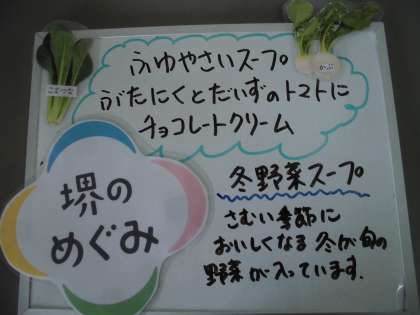 ふゆやさいスープ
ぶたにくとだいずのトマトに
チョコレートクリーム
こまつな
かぶ
堺の
めぐみ
冬野菜スープ
さむい季節に
おいしくなる冬が旬の
野菜が入っています。